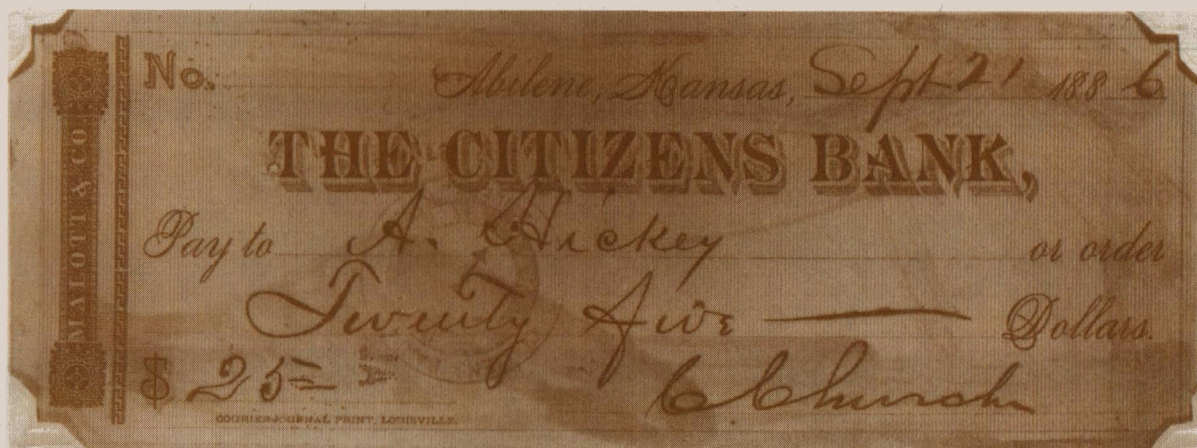 MALOTT & CO.
No. Abilene, Kansas, Sept 21 1886
THE CITIZENS BANK,
Pay to A. Hickey or order
Twenty Five — Dollars.
$ 25= C Church
COURIER-JOURNAL PRINT, LOUISVILLE.